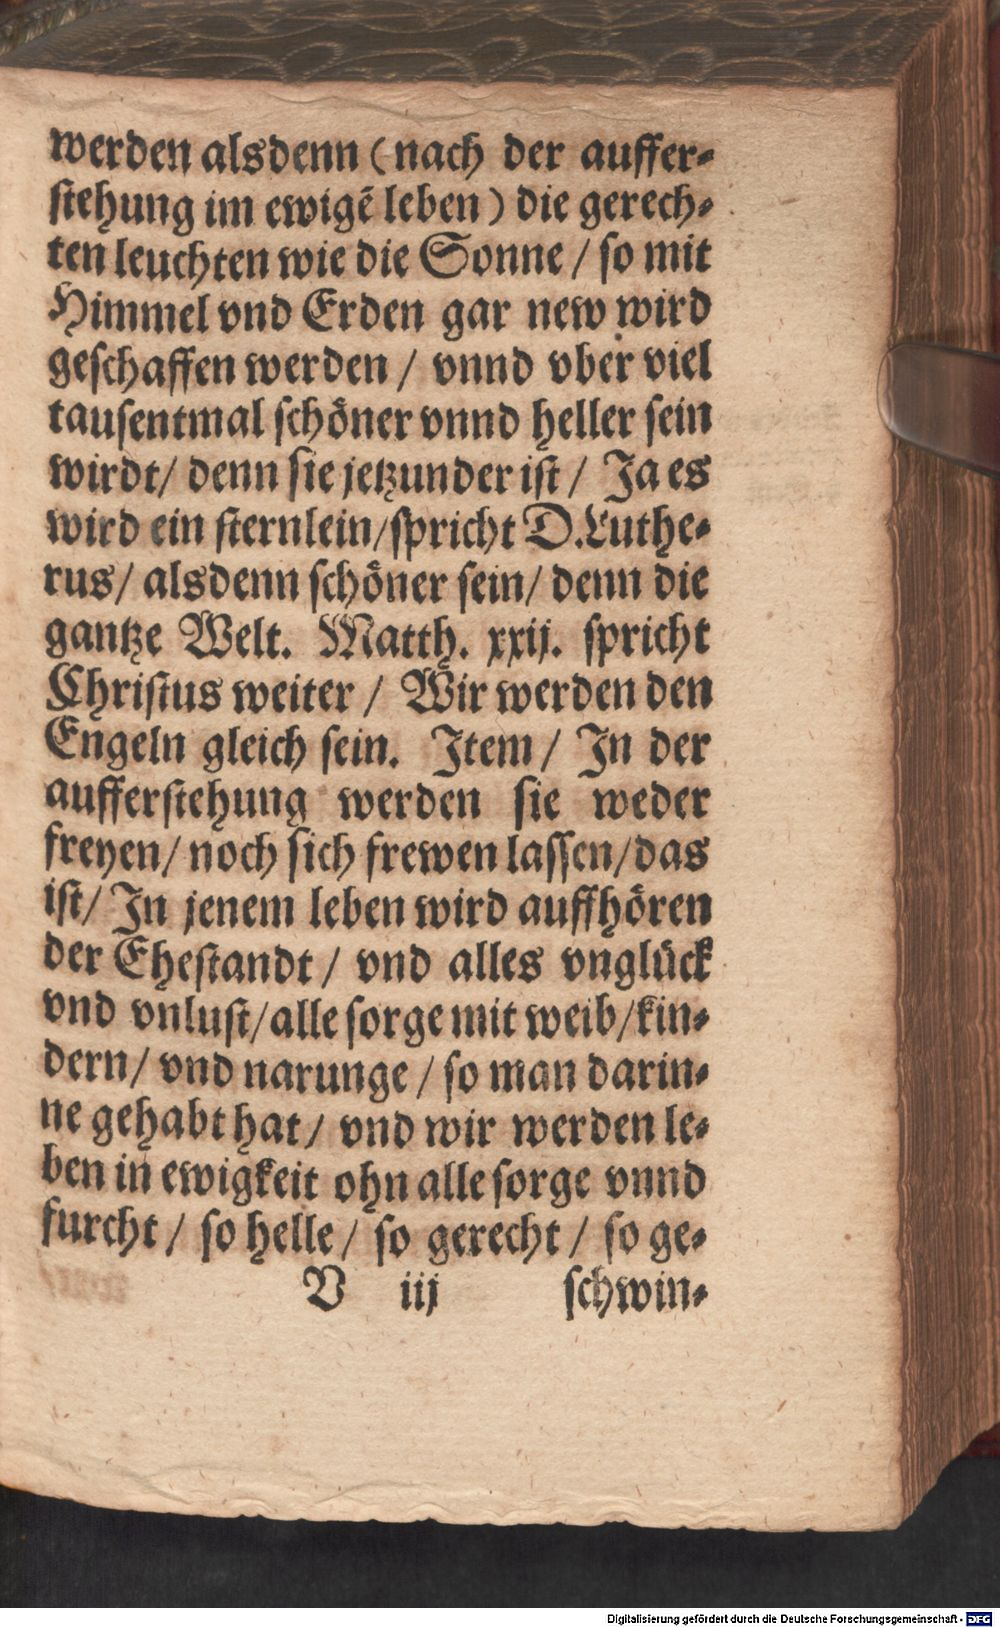 werden alsdenn (nach der auffer⸗
ſtehung im ewigẽ leben) die gerech⸗
ten leuchten wie die Sonne / ſo mit
Himmel vnd Erden gar new wird
geſchaffen werden / vnnd vber viel
tauſentmal ſchöner vnnd heller ſein
wirdt/ denn ſie jetzunder iſt / Ja es
wird ein ſternlein/ſpricht D.Luthe⸗
rus/ alsdenn ſchöner ſein/ denn die
gantze Welt. Matth. xxij. ſpricht
Chriſtus weiter / Wir werden den
Engeln gleich ſein. Item / In der
aufferſtehung werden ſie weder
freyen/ noch ſich frewen laſſen/das
iſt/ In jenem leben wird auffhören
der Eheſtandt / vnd alles vnglück
vnd vnluſt/alle ſorge mit weib/kin⸗
dern/ vnd narunge / ſo man darin⸗
ne gehabt hat / vnd wir werden le⸗
ben in ewigkeit ohn alle ſorge vnnd
furcht / ſo helle / ſo gerecht / ſo ge⸗
V iij ſchwin⸗
Digitalisierung gefördert durch die Deutsche Forschungsgemeinschaft - DFG